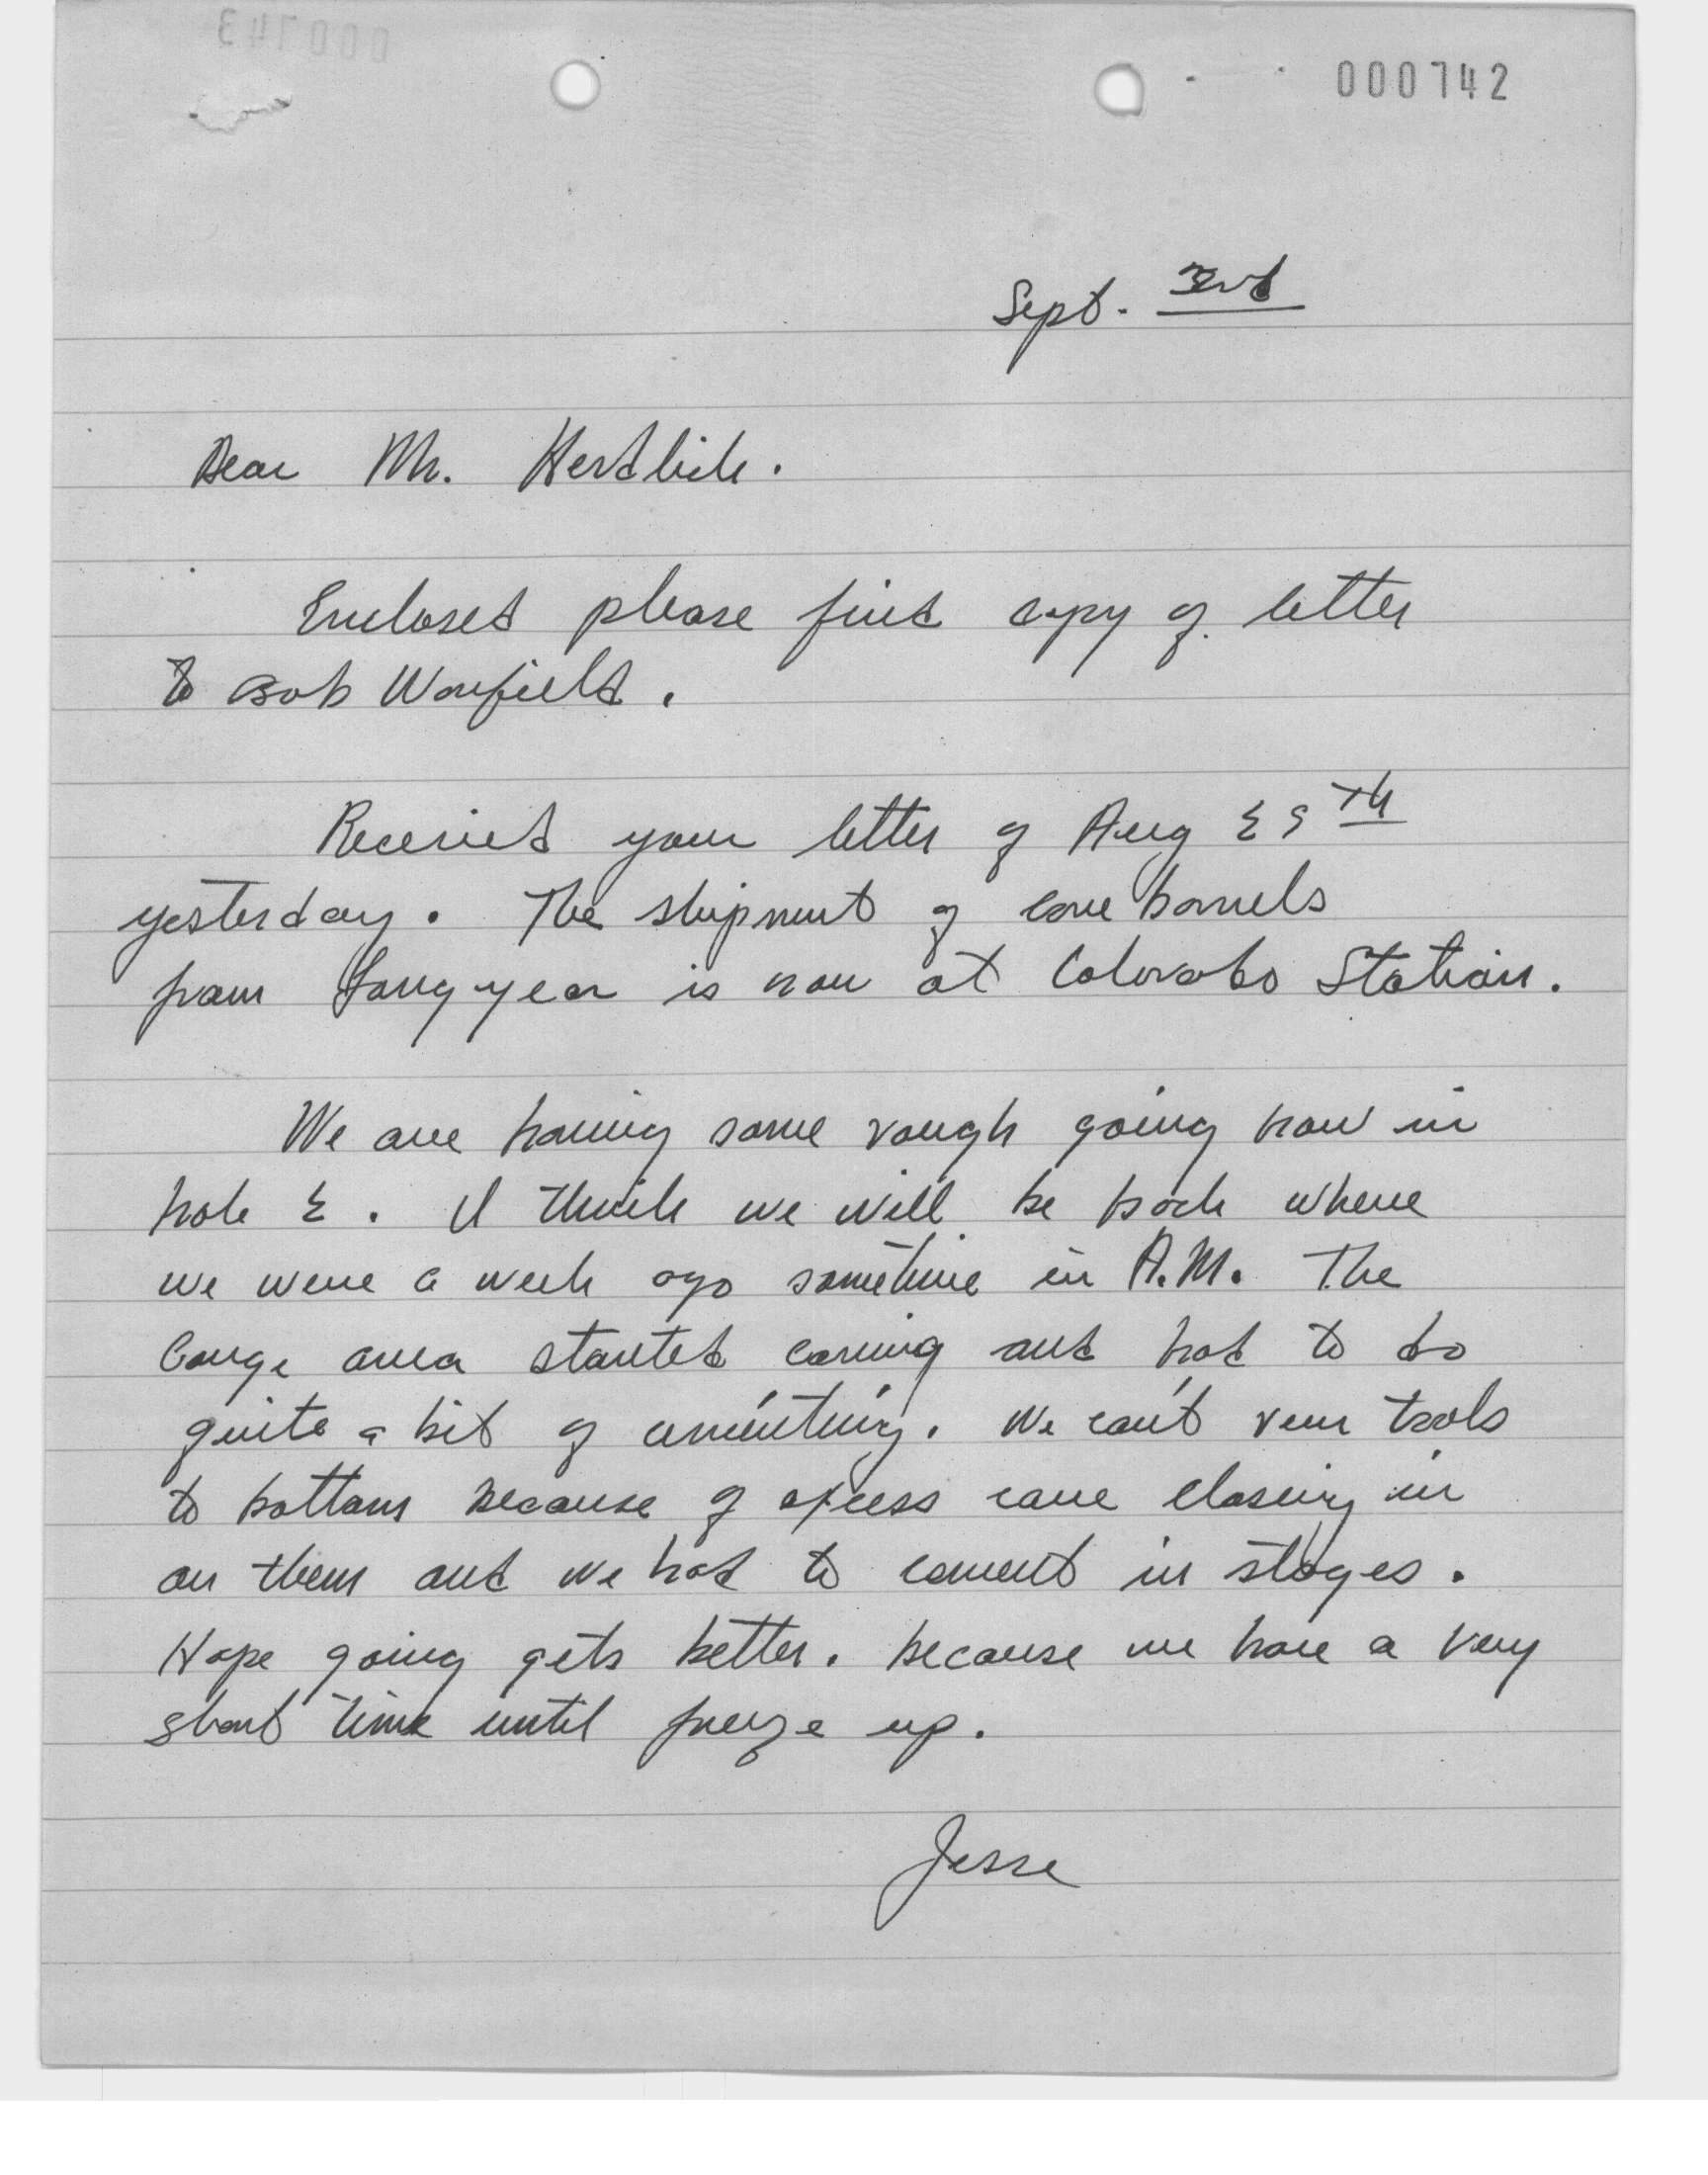 000742
Sept. 3rd
Dear Mr. Herdlick.
Enclosed please find copy of letter
to Bob Warfield.
Received your letter of Aug 29th
yesterday. The shipment of core barrels
from Longyear is now at Colorado Station.
We are having some rough going now in
hole 2. I think we will be back where
we were a week ago sometime in A.M. The
Gouge area started caving and had to do
quite a bit of cementing. We can't run tools
to bottom because of excess cave closing in
on them and we had to cement in stages.
Hope going gets better. because we have a very
short time until freeze up.
Jesse